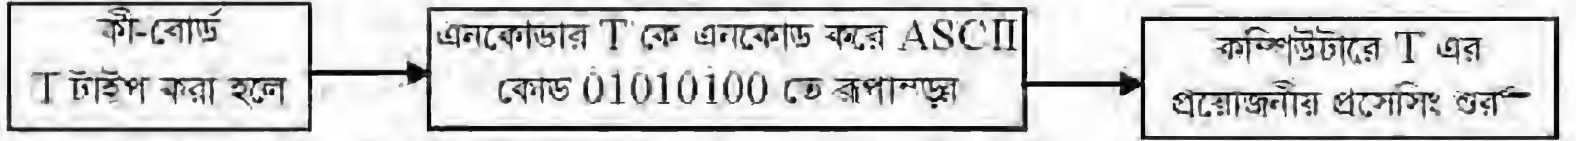 কী-বোর্ড
T টাইপ করা হলে
এনকোডার T কে এনকোড করে ASCII
কোড 01010100 তে রূপান্ত্মর
কম্পিউটারে T এর
প্রয়োজনীয় প্রসেসিং শুরু